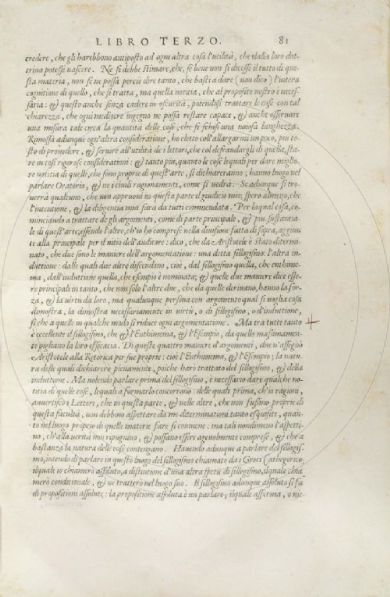 LIBRO TERZO. 81
credere, che gli harebbono antiposto ad ogni altra cosa l'utilità, che dalla loro dot-
trina potesse nascere. Ne si debbe stimare, che, se bene non si dicesse il tutto di que-
sta materia, non se ne possa perciò dire tanto, che basti a dare (non dico) l'intera
cognitione di quella, che si tratta, ma quella notitia, che al proposito nostro è neces-
saria: & questo anche senza cadere in oscurità, potendosi trattare le cose con tal
chiarezza, che ogni mediocre ingegno ne possa restare capace, & anche osservare
una misura tale circa la quantità delle cose, che si schifi una noiosa lunghezza.
Rimossa adunque ogn'altra consideratione, ho tolto
sto di provedere, & giovare all'utilità de i lettori, che col defraudargli di quella, sta-
re in così rigorose considerationi: & tanto piu, quanto le cose lequali per dare meglio
notitia di quelle, che sono proprie di quest'arte, si dichiareranno; hanno luogo nel
parlare Oratorio, & ne i civili ragionamenti, come si vedrà. Se adunque si tro-
verrà qualcuno, che non approvi in questa parte il giudicio mio, spero almeno, che
l'intentione, & la diligentia mia sarà da tutti commendata. Per laqual cosa, co-
minciando a trattare degli argomenti, come di parte principale, & piu sustantia-
le di quest'arte, essendo l'altre, ch'io ho compreso nella divisione fatta di sopra, aggiun-
te alla principale per il vitio dell'auditore: dico, che da Aristotele è stato determi-
nato, che due sono le maniere dell'argomentatione: una detta sillogismo: l'altra in-
duttione: dalle quali due altre discendono, cioè, dal sillogismo quella, che enthime-
ma, dall'induttione quella, che essempio è nominata; & quelle due maniere dice esse-
re principali in tanto, che non solo l'altre due, che da quelle derivano, hanno la for-
za, & la virtù da loro, ma qualunque persona con argomento qual si voglia cosa
dimostra, la dimostra necessariamente in virtù, o di sillogismo, o d'induttione,
si che a quelli in qualche modo si riduce ogni argomentatione. Ma tra tutti tanto
è eccellente il sillogismo, che & l'Enthimema, & l'Essempio, da quello massimamen-
te pigliano la loro efficacia. Di queste quattro maniere d'argomenti, due n'assegnò
Aristotele alla Retorica per sue proprie: cioè l'Enthimema, & l'Essempio; la natu-
ra delle quali dichiarerò pienamente, poiche harò trattato del sillogismo, & della
induttione. Ma volendo parlare prima del sillogismo, è necessario dare qualche no-
titia di quelle cose, lequali a formarlo concorrono: delle quali prima, ch'io ragioni,
avvertiscovi Lettori, che in questa parte, & nelle altre, che non fussino proprie di
questa facultà, non debbono aspettare da me determinationi tanto esquisite, quan-
to nel luogo proprio di quelle materie fare si conviene: ma tali nondimeno l'aspetti-
no, ch'alla verità non ripugnino, & possano essere agevolmente comprese, & che a
bastanza la natura delle cose contengano. Havendo adunque a parlare del sillogis-
mo, intendo di parlare in questo luogo del sillogismo chiamato da i Greci Cathegorico
ilquale io chiamerò assoluto, a distintione d'una altra spetie di sillogismo, laquale chia-
merò conditionale, & ne tratterò nel luogo suo. Il sillogismo adunque assoluto si fa
di propositioni assolute: la propositione assoluta è un parlare, ilquale afferma, o nie-